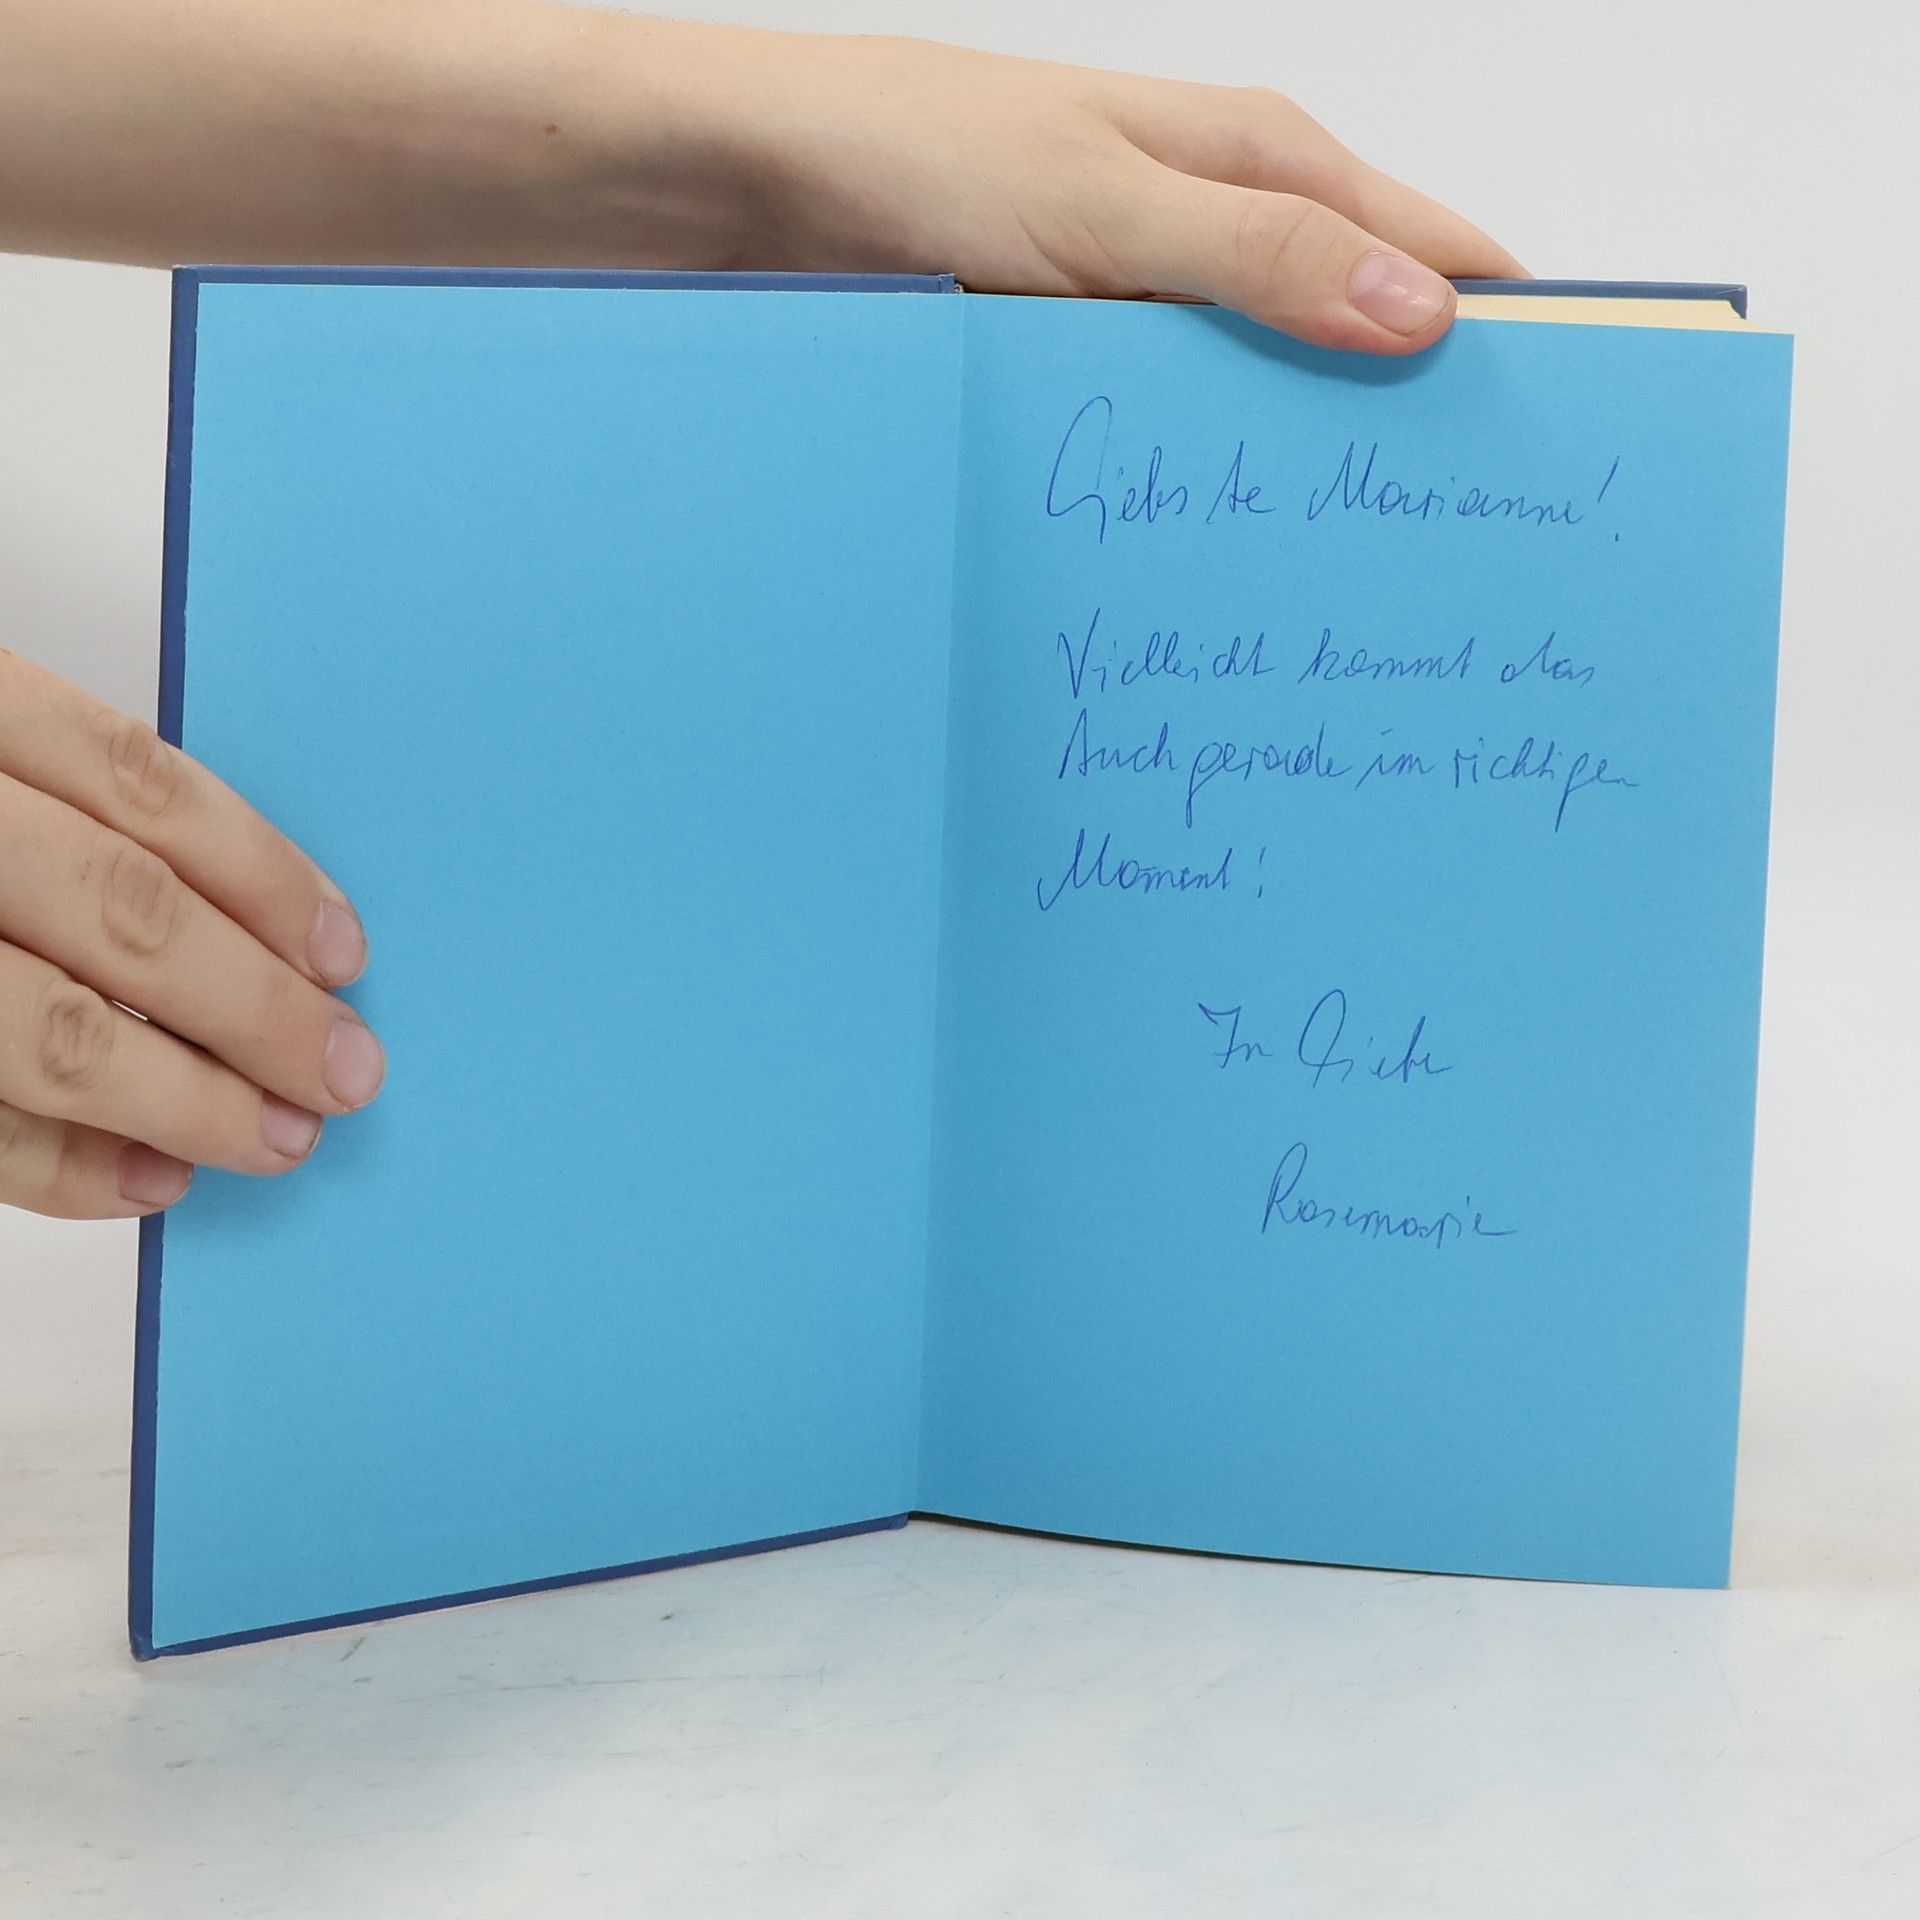 Liebste Marianne!
Vielleicht kommt das
Buch gerade im richtigen
Moment!
In Liebe
Rosemarie